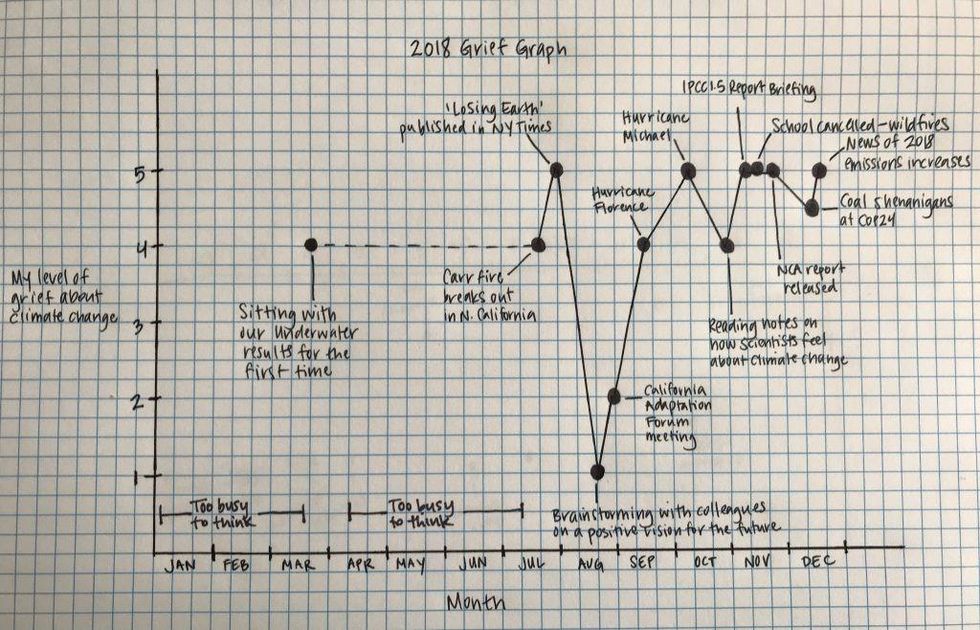 2018 Grief Graph
IPCC 1.5 Report Briefing
'Losing Earth'
published in NY Times
Hurricane
Michael
School cancelled - wildfires
News of 2018
emissions increases
5
Hurricane
Florence
Coal shenanigans
at COP24
4
My level of
grief about
climate change
Carr fire
breaks out
in N. California
NCA report
released
Sitting with
our Underwater
results for the
first time
3
Reading notes on
how scientists feel
about climate change
2
California
Adaptation
Forum
meeting
1
Too busy
to think
Too busy
to think
Brainstorming with colleagues
on a positive vision for the future
JAN FEB MAR APR MAY JUN JUL AUG SEP OCT NOV DEC
Month